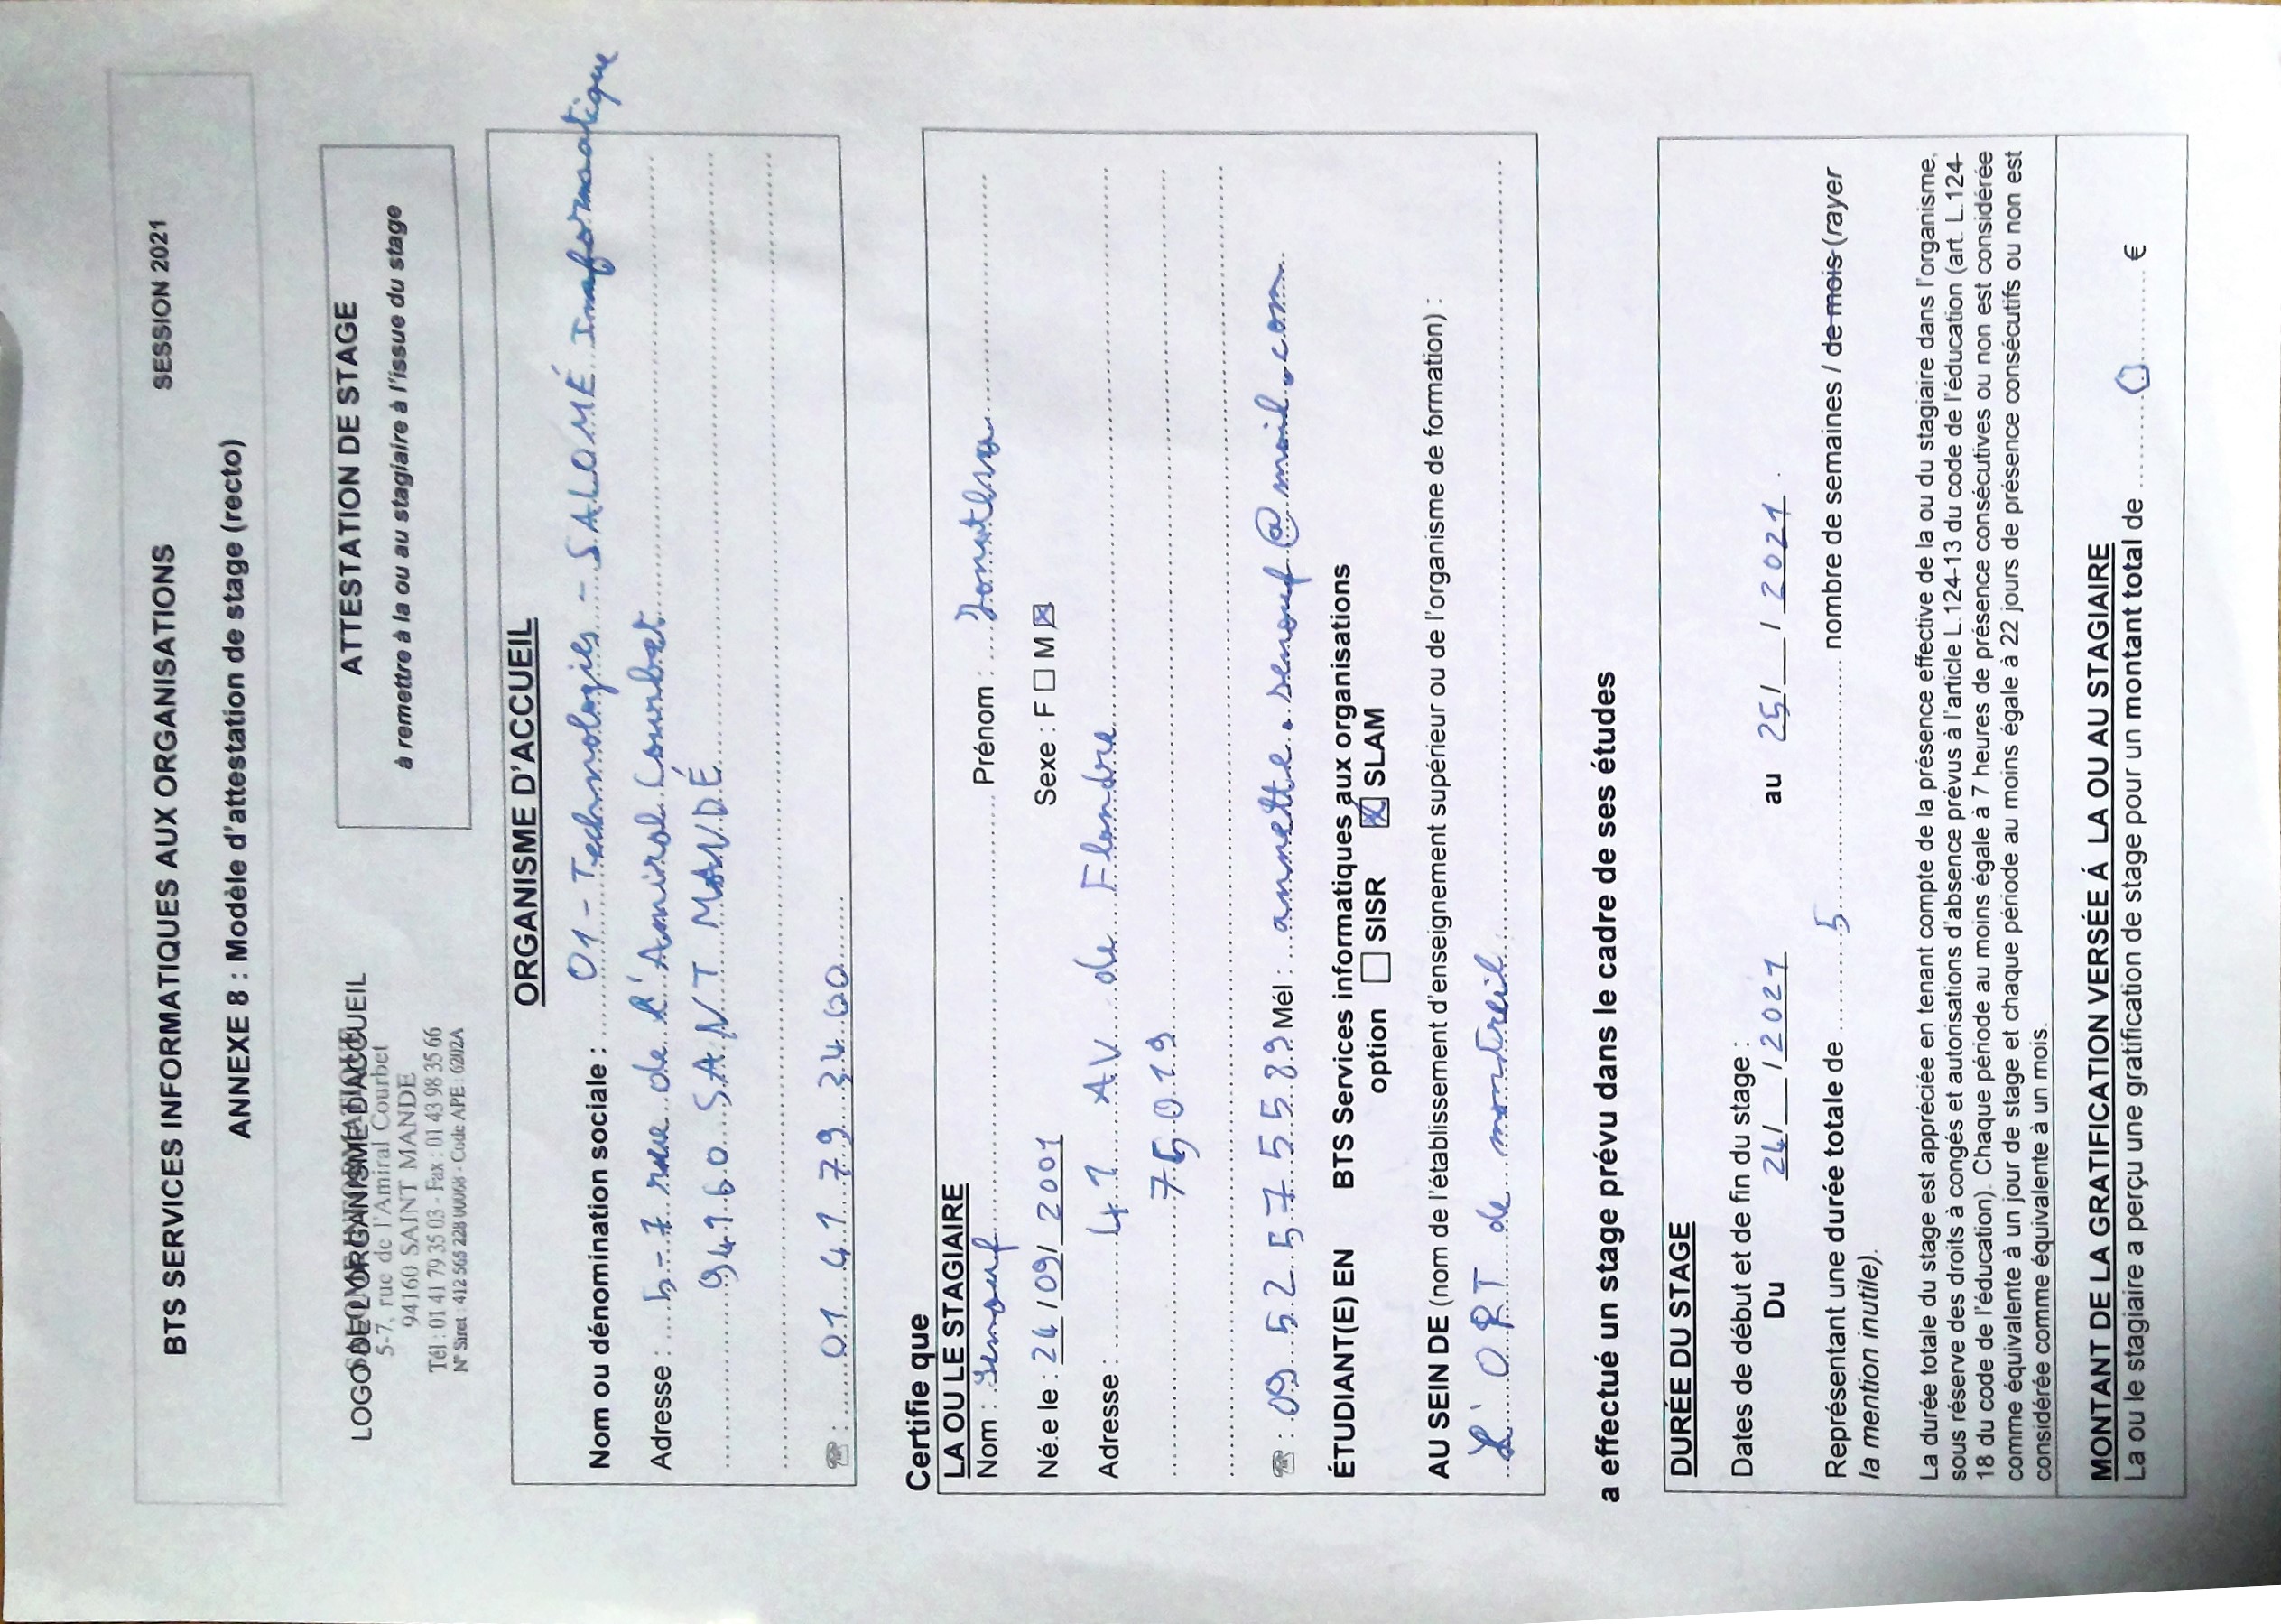 BTS SERVICES INFORMATIQUES AUX ORGANISATIONS SESSION 2021
ANNEXE 8 : Modèle d'attestation de stage (recto)
SALOME INFORMATIQUE
LOGO DE L'ORGANISME D'ACCUEIL
5-7, rue de l'Amiral Courbet
94160 SAINT MANDE
Tél : 01 41 79 35 03 - Fax : 01 43 98 35 66
N° Siret : 412 565 228 00068 - Code APE : 6202A
ATTESTATION DE STAGE
à remettre à la ou au stagiaire à l'issue du stage
ORGANISME D'ACCUEIL
Nom ou dénomination sociale : 01 - Technologies - SALOMÉ Informatique
Adresse : 5-7 rue de l'Amiral Courbet
94160 SANT MANDÉ
☎ : 01 41 79 34 00
Certifie que
LA OU LE STAGIAIRE
Nom : Senouf Prénom :
Né.e le : 24 / 09 / 2001 Sexe : F ☐ M ☒
Adresse : 41 AV de Flandre
75019
☎ : 09 52 57 55 89 Mél : annette.senouf@mail.com
ÉTUDIANT(E) EN BTS Services informatiques aux organisations
option ☐ SISR ☒ SLAM
AU SEIN DE (nom de l'établissement d'enseignement supérieur ou de l'organisme de formation) :
L'ORT de montreil
a effectué un stage prévu dans le cadre de ses études
DURÉE DU STAGE
Dates de début et de fin du stage :
Du 24/__/2021 au 25/__/2021.
Représentant une durée totale de 5 nombre de semaines / de mois (rayer
la mention inutile).
La durée totale du stage est appréciée en tenant compte de la présence effective de la ou du stagiaire dans l'organisme,
sous réserve des droits à congés et autorisations d'absence prévus à l'article L.124-13 du code de l'éducation (art. L.124-
18 du code de l'éducation). Chaque période au moins égale à 7 heures de présence consécutives ou non est considérée
comme équivalente à un jour de stage et chaque période au moins égale à 22 jours de présence consécutifs ou non est
considérée comme équivalente à un mois.
MONTANT DE LA GRATIFICATION VERSÉE Á LA OU AU STAGIAIRE
La ou le stagiaire a perçu une gratification de stage pour un montant total de 0 €